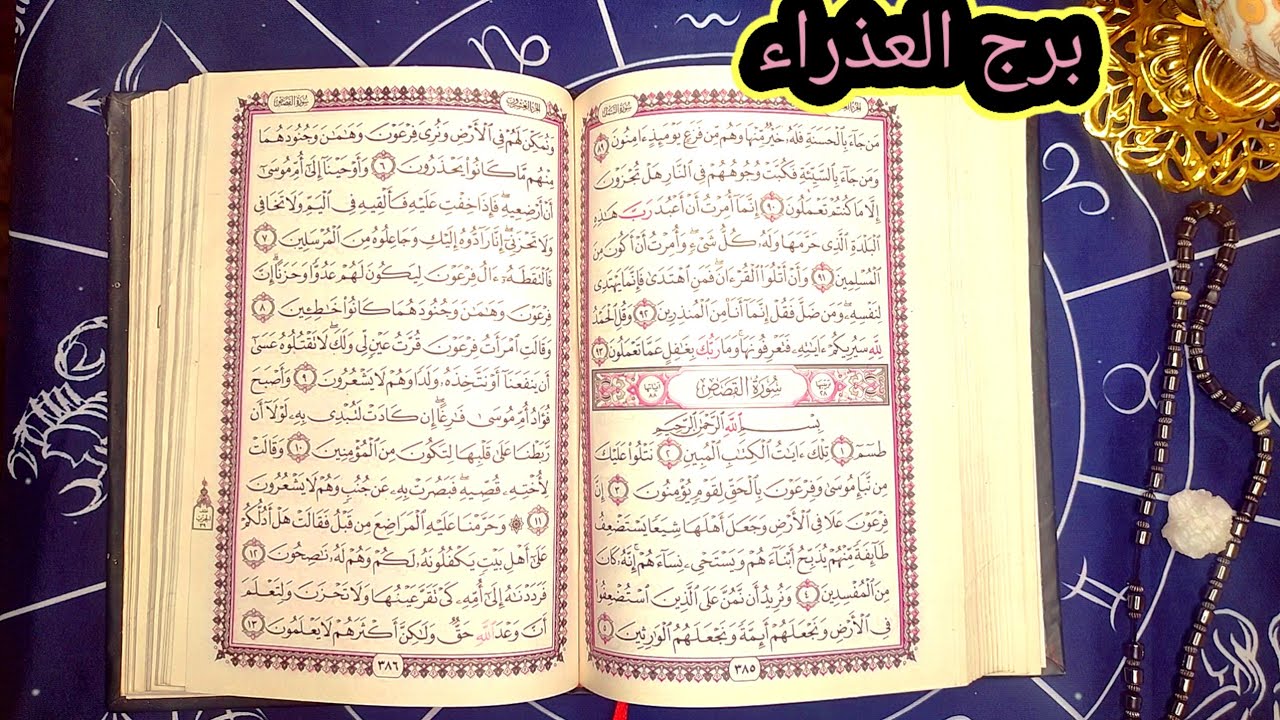 برج العذراء
مَن جَآءَ بِٱلْحَسَنَةِ فَلَهُۥ خَيْرٌ مِّنْهَا وَهُم مِّن فَزَعٍ يَوْمَئِذٍ ءَامِنُونَ ٨٩
وَمَن جَآءَ بِٱلسَّيِّئَةِ فَكُبَّتْ وُجُوهُهُمْ فِى ٱلنَّارِ هَلْ تُجْزَوْنَ
إِلَّا مَا كُنتُمْ تَعْمَلُونَ ٩٠ إِنَّمَآ أُمِرْتُ أَنْ أَعْبُدَ رَبَّ هَٰذِهِ
ٱلْبَلْدَةِ ٱلَّذِى حَرَّمَهَا وَلَهُۥ كُلُّ شَىْءٍ ۖ وَأُمِرْتُ أَنْ أَكُونَ مِنَ
ٱلْمُسْلِمِينَ ٩١ وَأَنْ أَتْلُوَا۟ ٱلْقُرْءَانَ ۖ فَمَنِ ٱهْتَدَىٰ فَإِنَّمَا يَهْتَدِى
لِنَفْسِهِۦ ۖ وَمَن ضَلَّ فَقُلْ إِنَّمَآ أَنَا۠ مِنَ ٱلْمُنذِرِينَ ٩٢ وَقُلِ ٱلْحَمْدُ
لِلَّهِ سَيُرِيكُمْ ءَايَٰتِهِۦ فَتَعْرِفُونَهَا ۚ وَمَا رَبُّكَ بِغَٰفِلٍ عَمَّا تَعْمَلُونَ ٩٣
سُورَةُ القَصَصِ
بِسْمِ ٱللَّهِ ٱلرَّحْمَٰنِ ٱلرَّحِيمِ
طسٓمٓ ١ تِلْكَ ءَايَٰتُ ٱلْكِتَٰبِ ٱلْمُبِينِ ٢ نَتْلُوا۟ عَلَيْكَ
مِن نَّبَإِ مُوسَىٰ وَفِرْعَوْنَ بِٱلْحَقِّ لِقَوْمٍ يُؤْمِنُونَ ٣ إِنَّ
فِرْعَوْنَ عَلَا فِى ٱلْأَرْضِ وَجَعَلَ أَهْلَهَا شِيَعًا يَسْتَضْعِفُ
طَآئِفَةً مِّنْهُمْ يُذَبِّحُ أَبْنَآءَهُمْ وَيَسْتَحْىِۦ نِسَآءَهُمْ ۚ إِنَّهُۥ كَانَ
مِنَ ٱلْمُفْسِدِينَ ٤ وَنُرِيدُ أَن نَّمُنَّ عَلَى ٱلَّذِينَ ٱسْتُضْعِفُوا۟
فِى ٱلْأَرْضِ وَنَجْعَلَهُمْ أَئِمَّةً وَنَجْعَلَهُمُ ٱلْوَٰرِثِينَ ٥
٣٨٥
سُورَةُ القَصَصِ
وَنُمَكِّنَ لَهُمْ فِى ٱلْأَرْضِ وَنُرِىَ فِرْعَوْنَ وَهَٰمَٰنَ وَجُنُودَهُمَا
مِنْهُم مَّا كَانُوا۟ يَحْذَرُونَ ٦ وَأَوْحَيْنَآ إِلَىٰٓ أُمِّ مُوسَىٰٓ
أَنْ أَرْضِعِيهِ ۖ فَإِذَا خِفْتِ عَلَيْهِ فَأَلْقِيهِ فِى ٱلْيَمِّ وَلَا تَخَافِى
وَلَا تَحْزَنِىٓ ۖ إِنَّا رَآدُّوهُ إِلَيْكِ وَجَاعِلُوهُ مِنَ ٱلْمُرْسَلِينَ ٧
فَٱلْتَقَطَهُۥٓ ءَالُ فِرْعَوْنَ لِيَكُونَ لَهُمْ عَدُوًّا وَحَزَنًا ۗ إِنَّ
فِرْعَوْنَ وَهَٰمَٰنَ وَجُنُودَهُمَا كَانُوا۟ خَٰطِـِٔينَ ٨
وَقَالَتِ ٱمْرَأَتُ فِرْعَوْنَ قُرَّتُ عَيْنٍ لِّى وَلَكَ ۖ لَا تَقْتُلُوهُ عَسَىٰٓ
أَن يَنفَعَنَآ أَوْ نَتَّخِذَهُۥ وَلَدًا وَهُمْ لَا يَشْعُرُونَ ٩ وَأَصْبَحَ
فُؤَادُ أُمِّ مُوسَىٰ فَٰرِغًا ۖ إِن كَادَتْ لَتُبْدِى بِهِۦ لَوْلَآ أَن
رَّبَطْنَا عَلَىٰ قَلْبِهَا لِتَكُونَ مِنَ ٱلْمُؤْمِنِينَ ١٠ وَقَالَتْ
لِأُخْتِهِۦ قُصِّيهِ ۖ فَبَصُرَتْ بِهِۦ عَن جُنُبٍ وَهُمْ لَا يَشْعُرُونَ
١١ ۞ وَحَرَّمْنَا عَلَيْهِ ٱلْمَرَاضِعَ مِن قَبْلُ فَقَالَتْ هَلْ أَدُلُّكُمْ
عَلَىٰٓ أَهْلِ بَيْتٍ يَكْفُلُونَهُۥ لَكُمْ وَهُمْ لَهُۥ نَٰصِحُونَ ١٢
فَرَدَدْنَٰهُ إِلَىٰٓ أُمِّهِۦ كَىْ تَقَرَّ عَيْنُهَا وَلَا تَحْزَنَ وَلِتَعْلَمَ
أَنَّ وَعْدَ ٱللَّهِ حَقٌّ وَلَٰكِنَّ أَكْثَرَهُمْ لَا يَعْلَمُونَ ١٣
٣٨٦